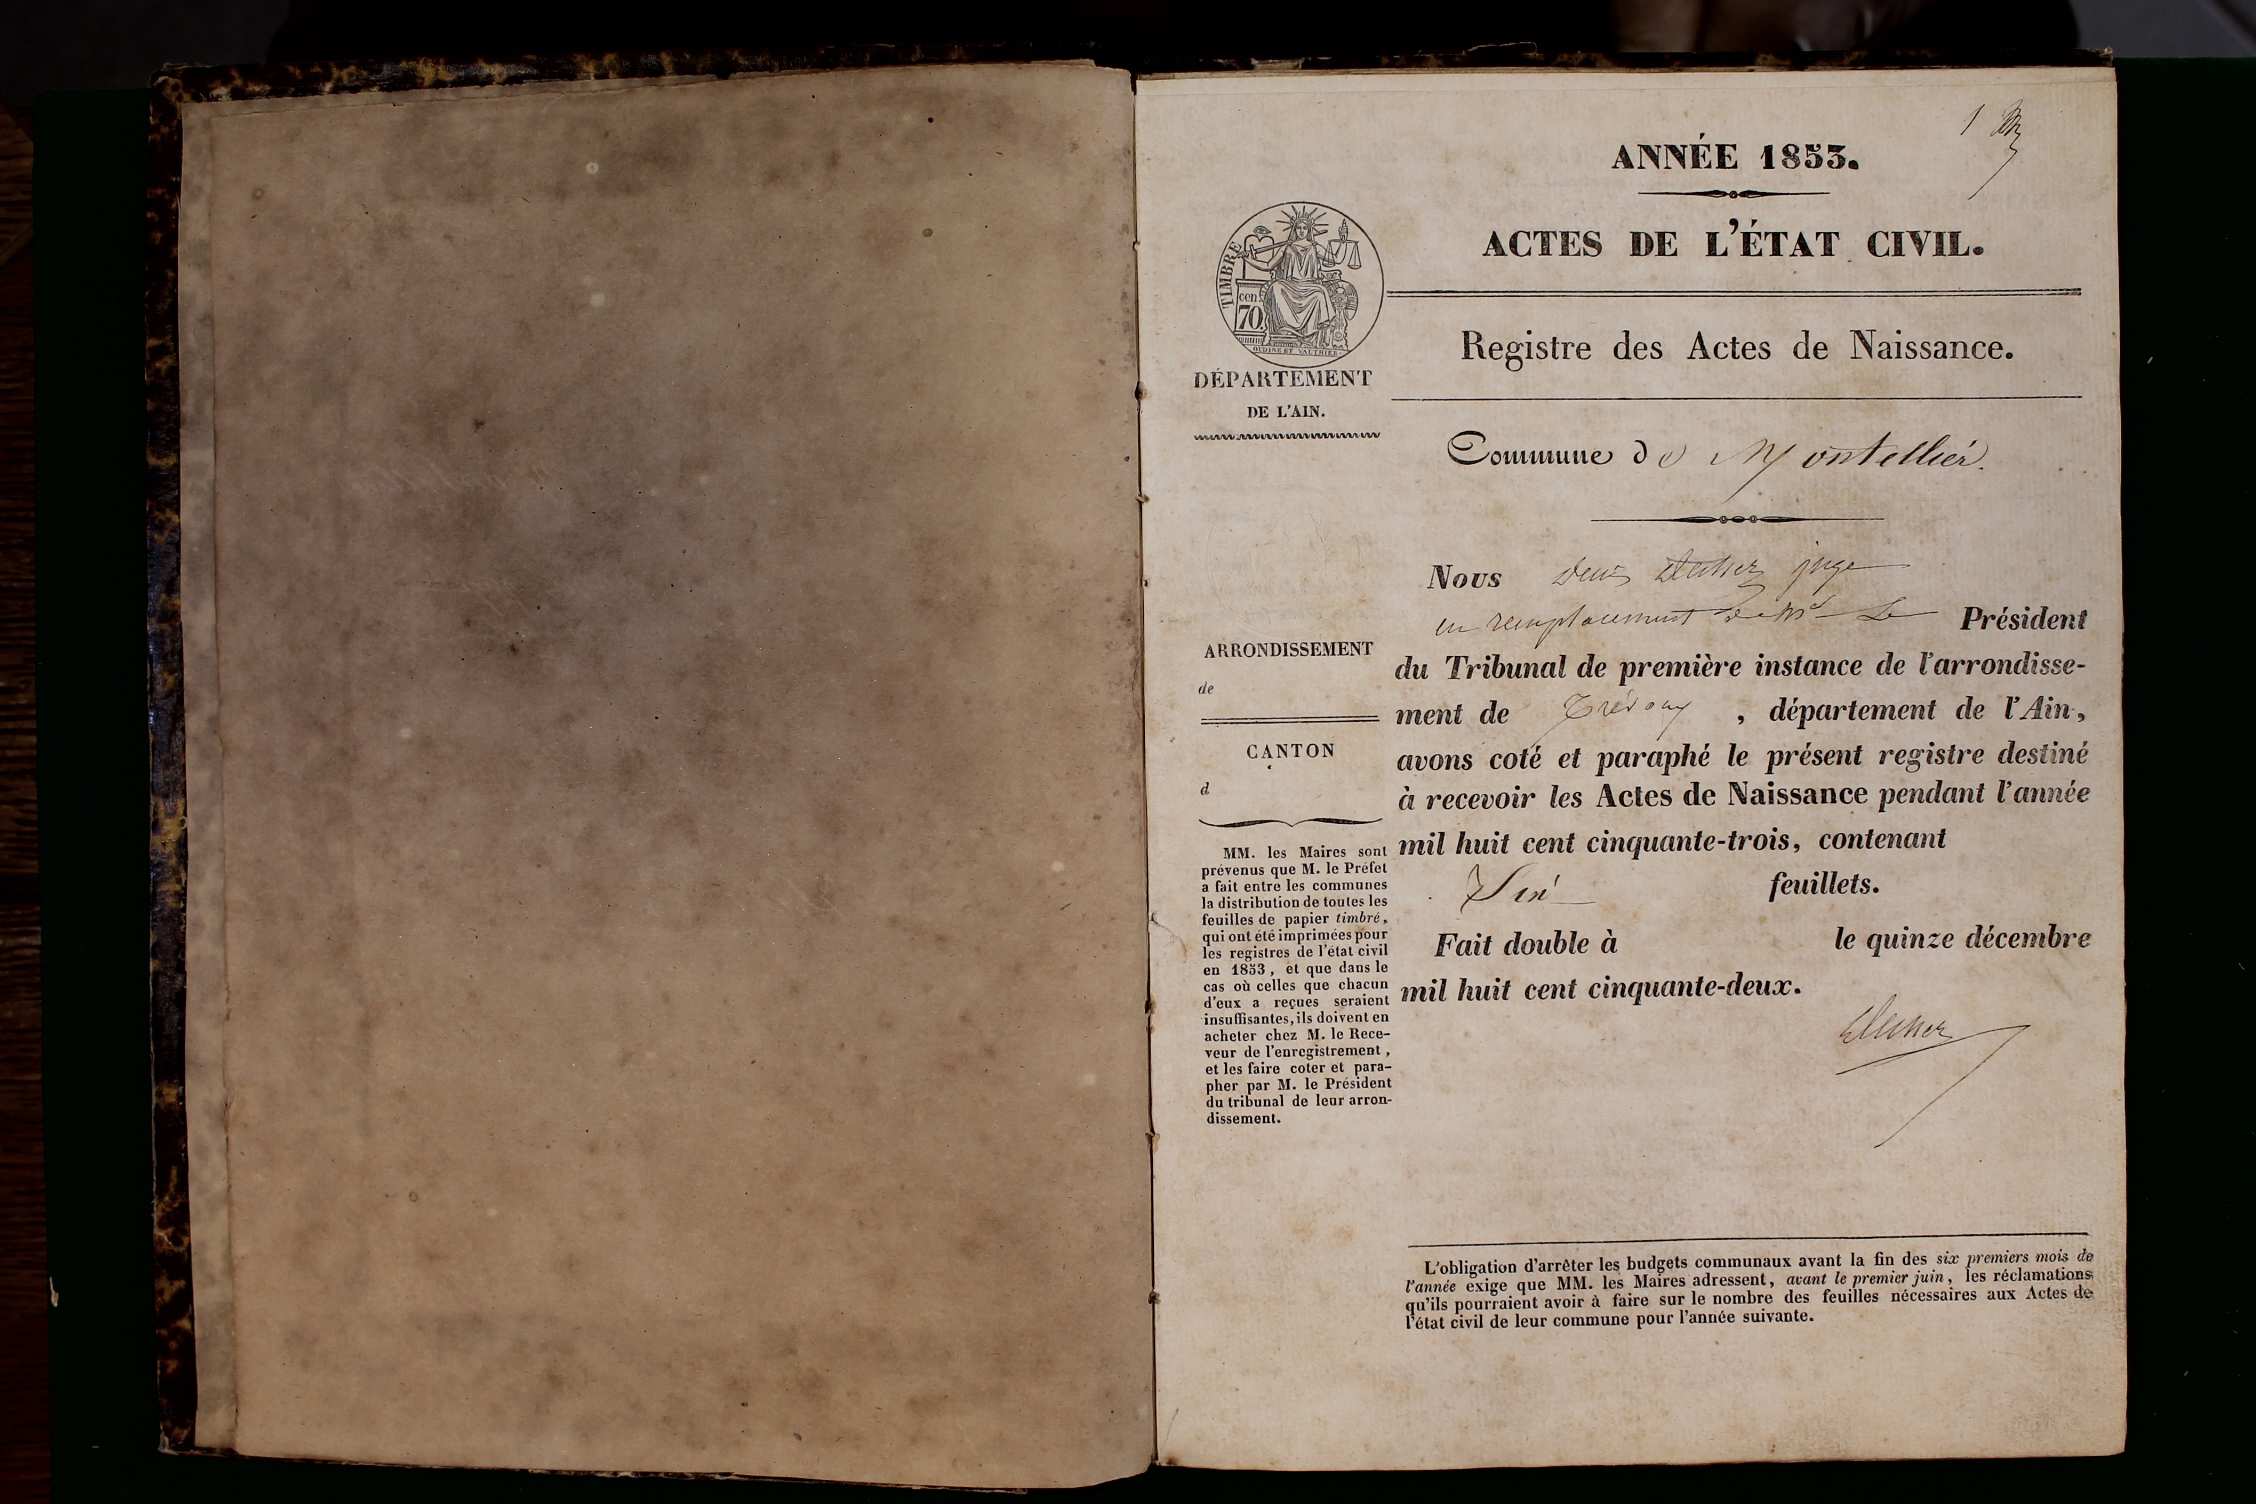 1
ANNÉE 1853.
ACTES DE L'ÉTAT CIVIL.
TIMBRE
cen
70.
OUDINE ET VAUTHIER
DÉPARTEMENT
DE L'AIN.
Registre des Actes de Naissance.
Commune de Montellier.
Nous juge
en remplacement de Mr Le Président
du Tribunal de première instance de l'arrondisse-
ment de Trévoux, département de l'Ain,
avons coté et paraphé le présent registre destiné
à recevoir les Actes de Naissance pendant l'année
mil huit cent cinquante-trois, contenant
feuillets.
Fait double à le quinze décembre
mil huit cent cinquante-deux.
ARRONDISSEMENT
de
CANTON
d
MM. les Maires sont
prévenus que M. le Préfet
a fait entre les communes
la distribution de toutes les
feuilles de papier timbré,
qui ont été imprimées pour
les registres de l'état civil
en 1853, et que dans le
cas où celles que chacun
d'eux a reçues seraient
insuffisantes, ils doivent en
acheter chez M. le Rece-
veur de l'enregistrement,
et les faire coter et para-
pher par M. le Président
du tribunal de leur arron-
dissement.
L'obligation d'arrêter les budgets communaux avant la fin des six premiers mois de
l'année exige que MM. les Maires adressent, avant le premier juin, les réclamations
qu'ils pourraient avoir à faire sur le nombre des feuilles nécessaires aux Actes de
l'état civil de leur commune pour l'année suivante.